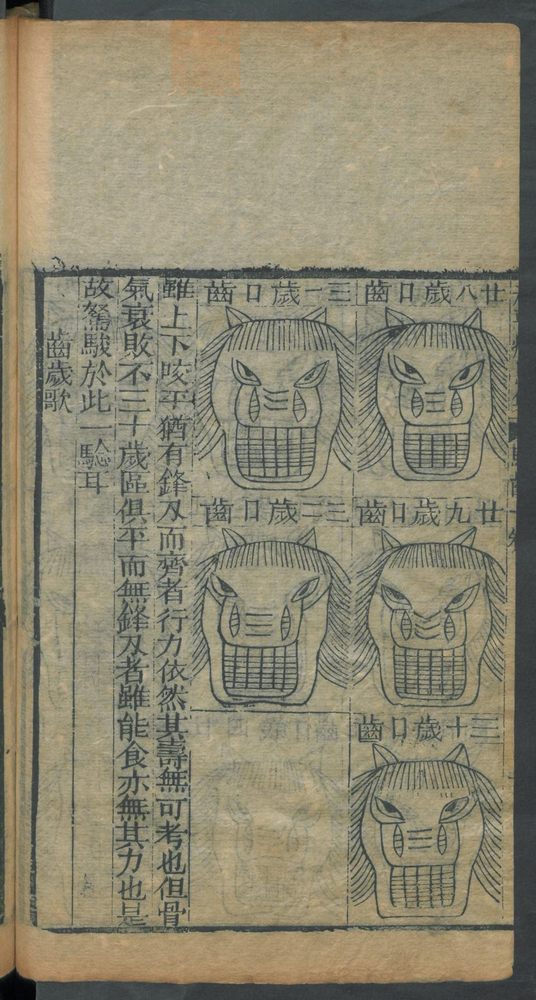 廿八歲口齒
廿九歲口齒
三十歲口齒
三一歲口齒
三二歲口齒
雖上下咬平猶有鋒刄而齊者行力依然其壽無可考也但骨
氣衰敗不三十歲區俱平而無鋒刄者雖能食亦無其力也是
故駑駿於此一驗耳
齒歲歌